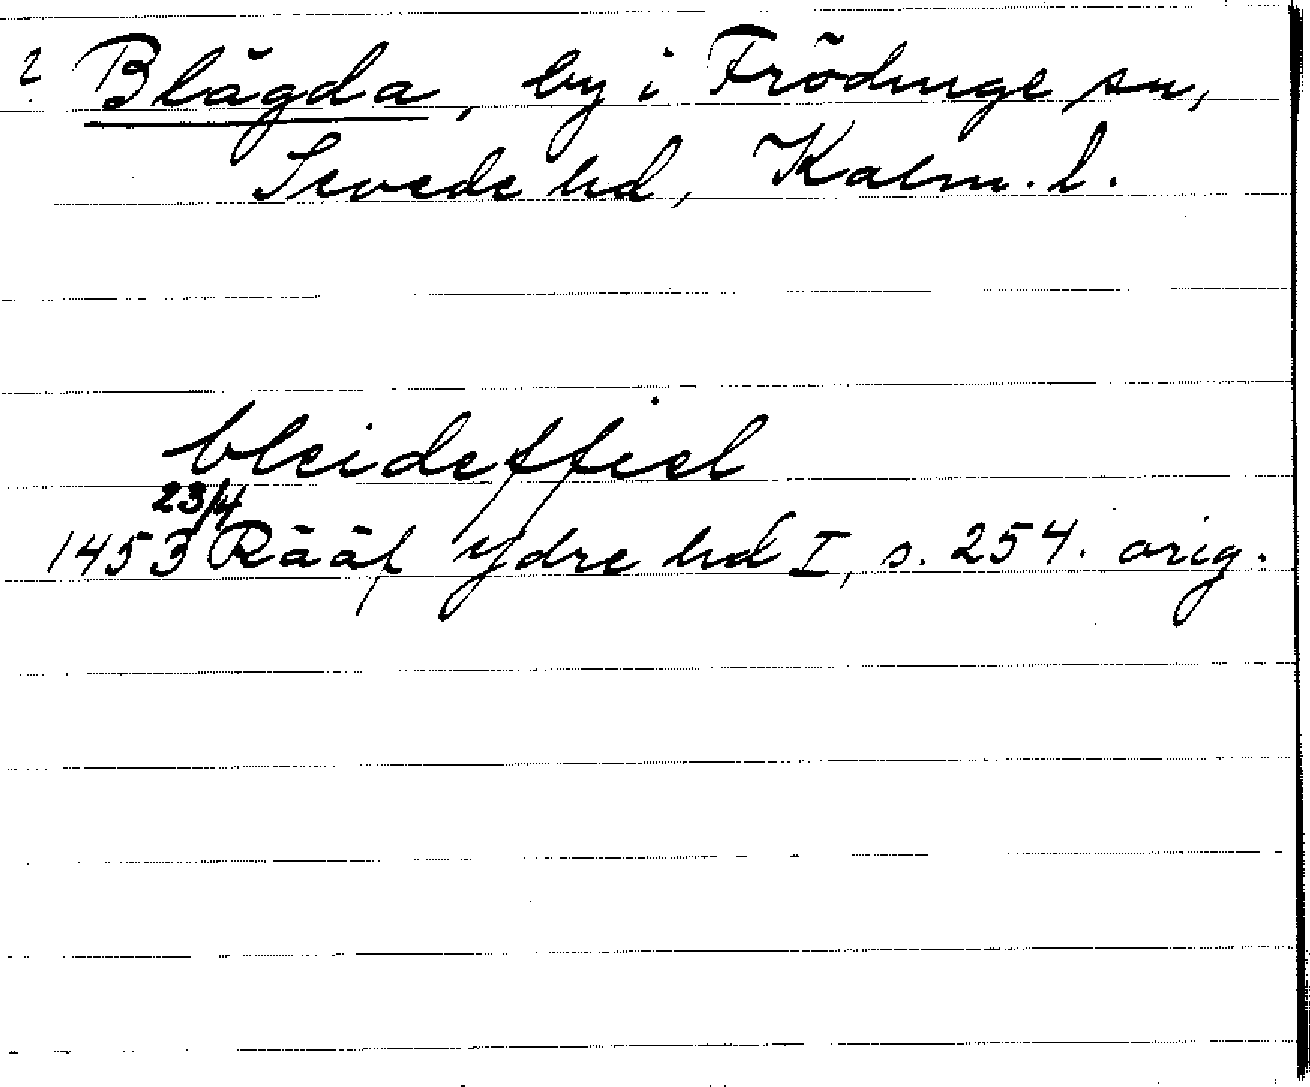 ? Blägda, by i Frödinge sn,
Sevede hd, Kalm. l.
bleideffiel
23/4
1453 Rääf Ydre hd I, s. 254. orig.